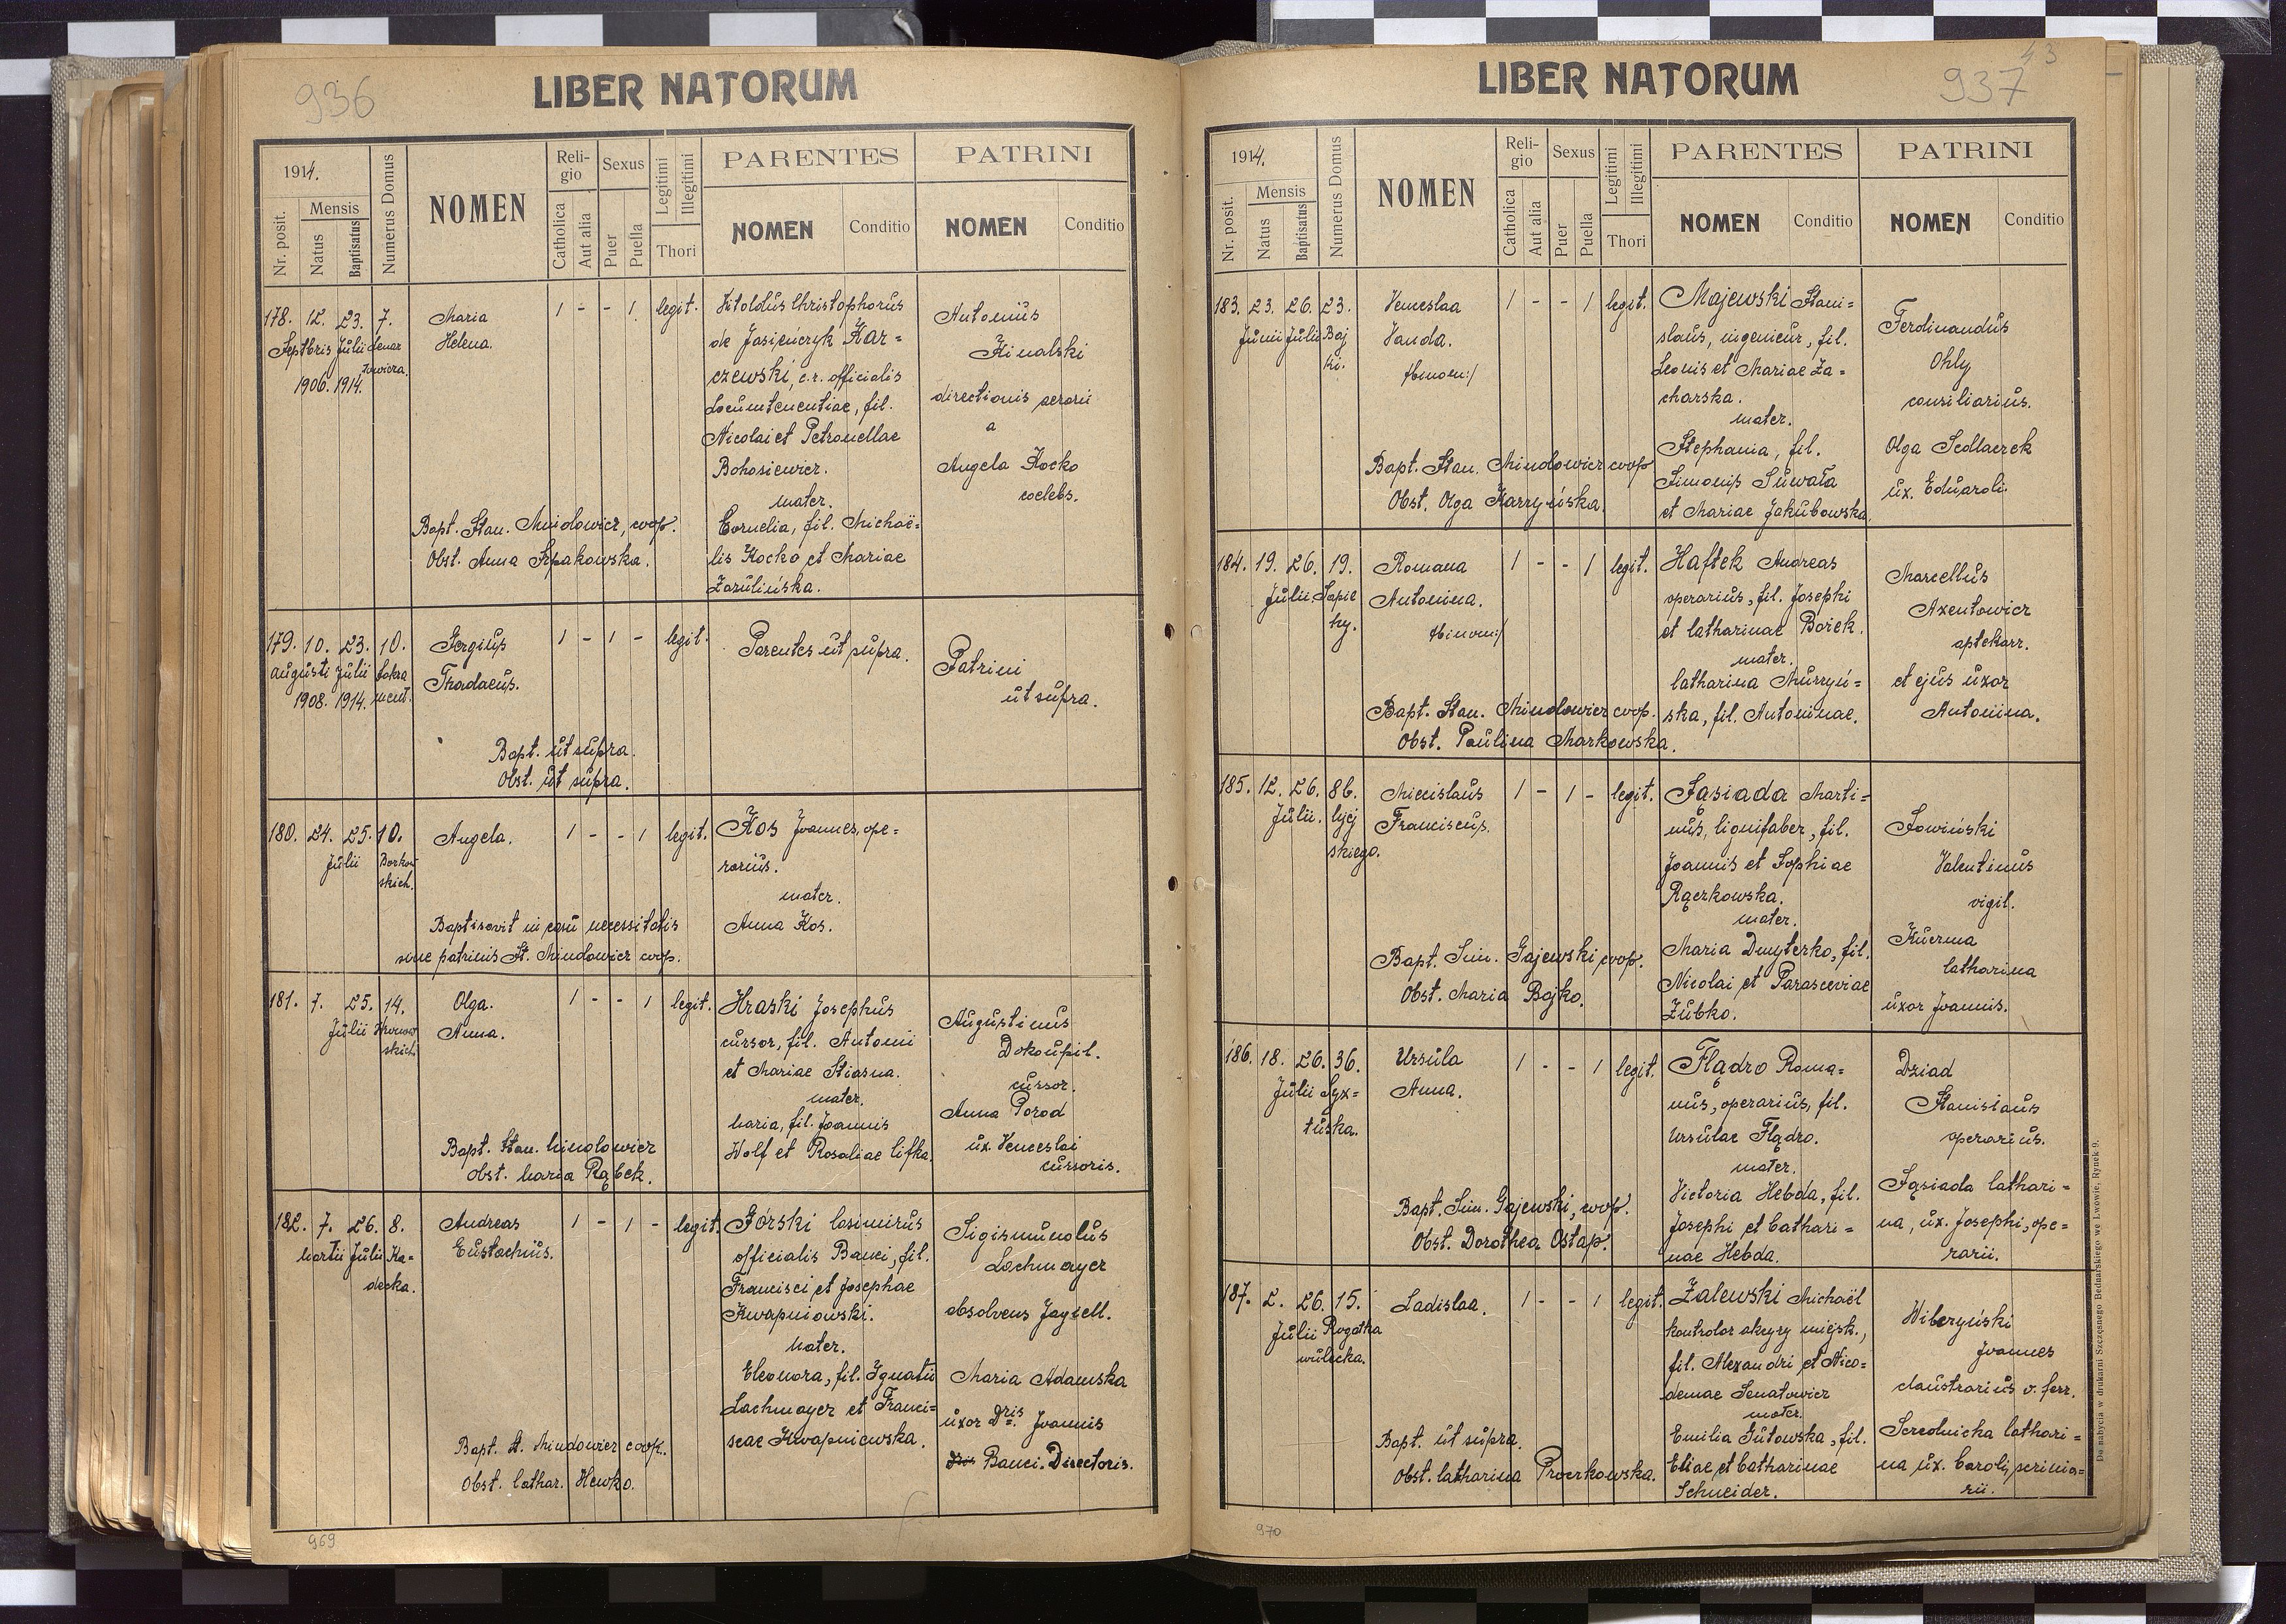 936
LIBER NATORUM
1914.
Nr. posit.
Mensis
Natus
Baptisatus
Numerus Domus
NOMEN
Reli-
gio
Catholica
Aut alia
Sexus
Puer
Puella
Legitimi
Illegitimi
Thori
PARENTES
NOMEN
Conditio
PATRINI
NOMEN
Conditio
178. 12. 23. 7.
Septbris Julii Lenar
towicza.
1906. 1914.
Maria
Helena.
1 - - 1 legit.
Vitoldus Christophorus
de Jasieńczyk Kar=
czewski, c.r. officialis
Locumtenentiae, fil.
Nicolai et Petronellae
Bohosiewicz.
mater.
Cornelia, fil. Michaë=
lis Kocko et Mariae
Zazulińska.
Antonius
Kinalski
directionis aerarii
a
Angela Kocko
coelebs.
Bapt. Stan. Mindowicz, coop.
Obst. Anna Szpakowska.
179. 10. 23. 10.
Augusti Julii
1908. 1914.
Sergius
Thadaeus.
1 - 1 - legit.
Parentes ut supra.
Patrini
ut supra.
Bapt. ut supra.
Obst. ut supra.
180. 24. 25. 10.
Julii Borkow
skich.
Angela.
1 - - 1 legit.
Kos Joannes, ope=
rarius.
mater.
Anna Kos.
Baptisavit in casu necessitatis
sine patrinis St. Mindowicz coop.
181. 7. 25. 14.
Julii
skich.
Olga.
Anna.
1 - - 1 legit.
Hraski Josephus
cursor, fil. Antonii
et Mariae Stiasna.
mater.
Maria, fil. Joannis
Wolf et Rosaliae Cifka.
Augustinus
Dokoupil.
cursor.
Anna Porod
ux. Venceslai
cursoris.
Bapt. Stan. Mindowicz
Obst. Maria Rąbek.
182. 7. 26. 8.
Martii Julii Ka=
decka.
Andreas
Eustachius.
1 - 1 - legit.
Górski Casimirus
officialis Banci, fil.
Francisci et Josephae
Kwapniowski.
Mater.
Eleonora, fil. Ignatii
Lachmayer et Franci=
scae Kwapniewska.
Sigismundus
Lachmayer
absolvens Jagiell.
Maria Adamska
uxor Dris. Joannis
Dris Banci. Directoris.
Bapt. St. Mindowicz coop.
Obst. Cathar. Hewko.
969
937
43
LIBER NATORUM
1914.
Nr. posit.
Mensis
Natus
Baptisatus
Numerus Domus
NOMEN
Reli-
gio
Catholica
Aut alia
Sexus
Puer
Puella
Legitimi
Illegitimi
Thori
PARENTES
NOMEN
Conditio
PATRINI
NOMEN
Conditio
183. 23. 26. 23.
Junii Julii Baj
ki.
Venceslaa
Vanda.
/:binom:/
1 - - 1 legit.
Majewski Stani=
slaus, ingenieur, fil.
Leonis et Mariae Za=
charska.
mater.
Stephania, fil.
Simonis Suwała
et Mariae Jakubowska.
Ferdinandus
Ohly
consiliarius.
Olga Sedlaczek
ux. Eduardi.
Bapt. Stan. Mindowicz coop
Obst. Olga Karzyńska.
184. 19. 26. 19.
Julii. Sapie
hy.
Romana
Antonina.
/:binom:/
1 - - 1 legit.
Haftek Andreas
operarius, fil. Josephi
et Catharinae Bożek.
mater.
Catharina Murzyń=
ska, fil. Antoninae.
Marcellus
Axentowicz
aptekarz.
et ejus uxor
Antonina.
Bapt. Stan. Mindowicz coop.
Obst. Paulina Markowska.
185. 12. 26. 86.
Julii. Łycj
skiego.
Miecislaus
Franciscus.
1 - 1 - legit.
Sąsiada Marti=
nus, lignifaber, fil.
Joannis et Sophiae
Rączkowska.
mater.
Maria Dmyterko, fil.
Nicolai et Parasceviae
Zubko.
Łowiński
Valentinus
vigil.
Kuczma
Catharina
uxor Joannis.
Bapt. Sim. Gajewski, coop.
Obst. Maria Bojko.
186. 18. 26. 36.
Julii Syx=
tuska.
Ursula
Anna.
1 - - 1 legit.
Flądro Roma=
nus, operarius, fil.
Ursulae Flądro.
mater.
Victoria Hebda, fil.
Josephi et Cathari=
nae Hebda.
Dziad
Stanislaus
operarius.
Sąsiada Cathari=
na, ux. Josephi, ope=
rarii.
Bapt. Sim. Gajewski, coop.
Obst. Dorothea Ostap.
187. 2. 26. 15.
Julii Rogatka
wulecka.
Ladislaa.
1 - - 1 legit.
Zalewski Michaël
kontrolor akcyzy miejsk.,
fil. Alexandri et Nico=
demae Senatowicz
mater.
Emilia Gutowska, fil.
Eliae et Catharinae
Schneider.
Wiberyński
Joannes
claustrarius v. ferr.
Serednicka Cathari=
na ux. Caroli, scrinia=
rii.
Bapt. ut supra.
Obst. Catharina Proczkowska.
Do nabycia w drukarni Szczęsnego Bednarskiego we Lwowie, Rynek 9.
970